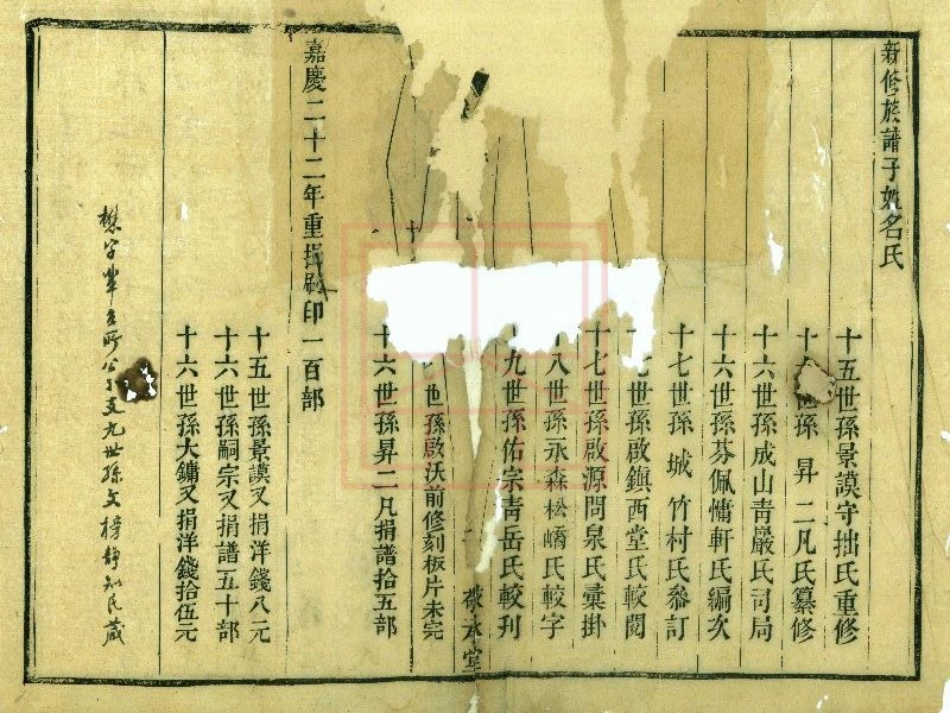 新修族譜子姓名氏
十五世孫景謨守拙氏重修
十 世孫 昇二凡氏纂修
十六世孫成山青巖氏司局
十六世孫芬佩慵軒氏編次
十七世孫 城 竹村氏叅訂
世孫啟鎮西堂氏較閱
十七世孫啟源問泉氏彙掛
八世孫永森松嶠氏較字
九世孫佑宗青岳氏較刊
承堂
世孫啟沃前修刻板片未完
十六世孫昇二凡捐譜拾五部
嘉慶二十二年重 刷印一百部
十五世孫景謨又捐洋錢八元
十六世孫嗣宗又捐譜五十部
十六世孫大鏞又捐洋錢拾伍元
懋字 公 支九世孫文榜靜 氏藏